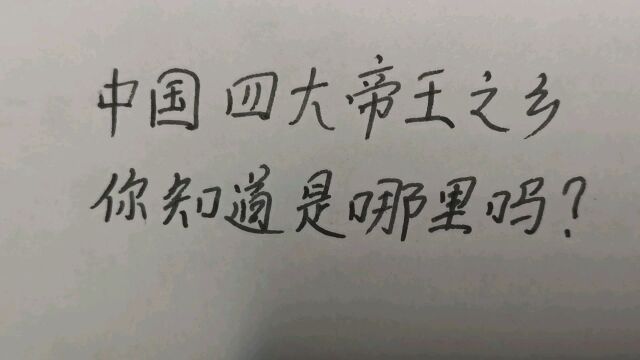 中国四大帝王之乡
你知道是哪里吗?